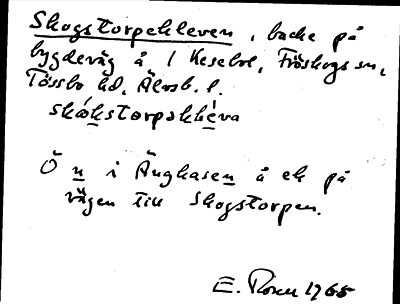 Skogstorpekleven, backe på
bygdeväg å 1 Kesebol, Fröskogs sn,
Tössbo hd. Älvsb. l.
skókstorpakkléva
Ö n i Änghasen å ek på
vägen till Skogstorpen.
E. Rosen 1965